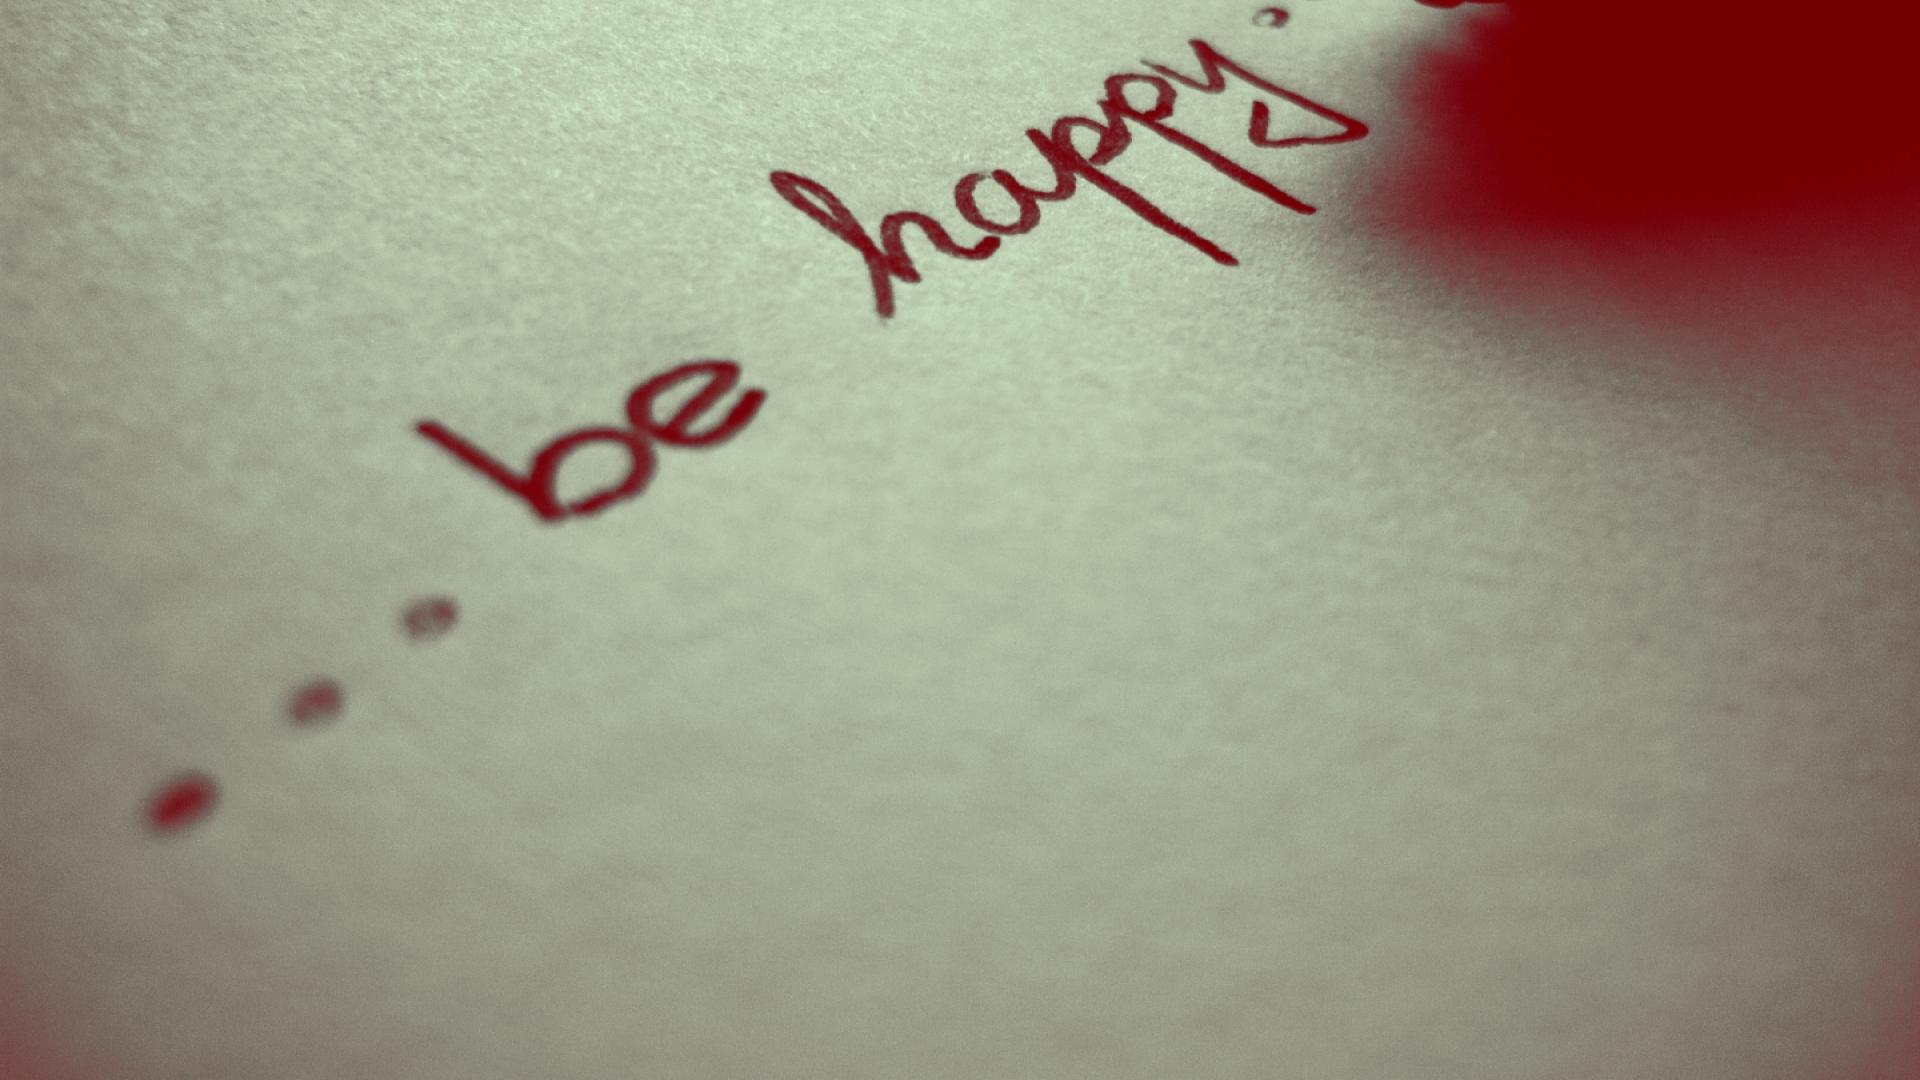 ... be happy.